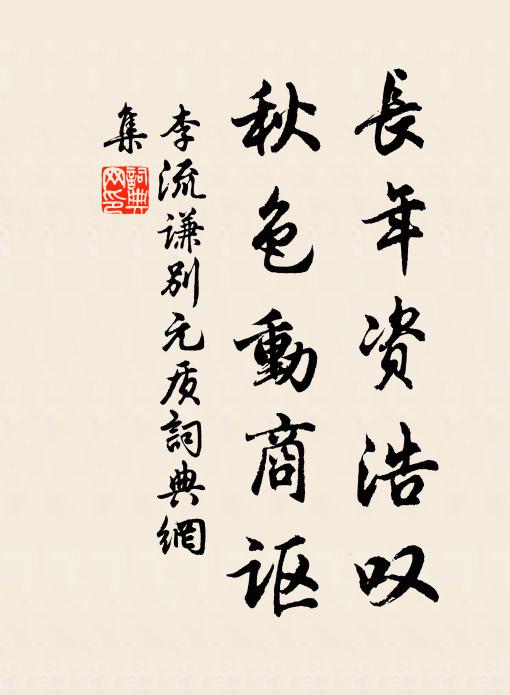 長年资浩叹
秋色動商讴
李流谦别元质詞典網
集
詞典网印